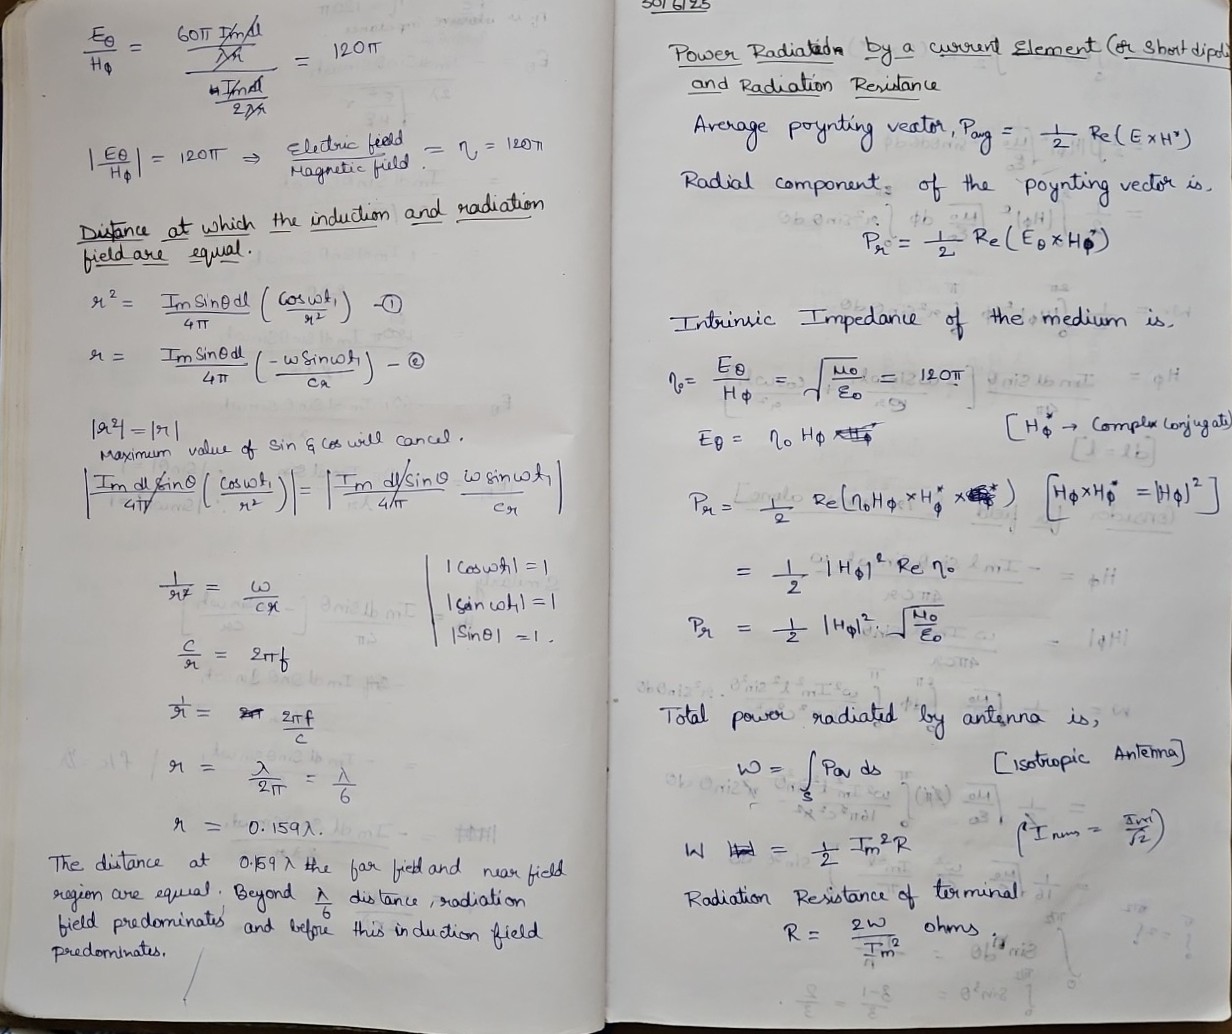 Eθ/Hφ = (60π Imdl/λr)/(Imdl/2λr) = 120π
|Eθ/Hφ| = 120π ⇒ Electric field/Magnetic field = η = 120π
Distance at which the induction and radiation
field are equal.
r² = Im Sinθ dl/4π (Cos wt₁/r²) - ①
r = Im Sinθ dl/4π (-w Sin wt₁/cr) - ②
|r²| = |r|
Maximum value of Sin & Cos will cancel.
|Im dl Sinθ/4π (Cos wt₁/r²)| = |Im dl Sinθ/4π w sin wt₁/cr|
1/r² = w/cr
|Cos wt₁| = 1
|Sin wt₁| = 1
|Sinθ| = 1.
c/r = 2πf
1/r = 2πf/c
r = λ/2π = λ/6
r = 0.159λ.
The distance at 0.159λ the far field and near field
region are equal. Beyond λ/6 distance, radiation
field predominates and before this induction field
predominates.
30/6/25
Power Radiation by a current Element (or Short dipole
and Radiation Resistance
Average poynting vector, Pavg = 1/2 Re(E×H*)
Radial component of the poynting vector is,
Pr = 1/2 Re(Eθ×Hφ*)
Intrinsic Impedance of the medium is.
η₀ = Eθ/Hφ = √(μ₀/ε₀) = 120π
Eθ = η₀ Hφ [Hφ* → Complex Conjugate
Pr = 1/2 Re(η₀Hφ×Hφ*) [Hφ×Hφ* = |Hφ|²]
= 1/2 |Hφ|² Re η₀
Pr = 1/2 |Hφ|² √(μ₀/ε₀)
Total power radiated by antenna is,
W = ∫s Pav ds [Isotropic Antenna]
W = 1/2 Im²R (Irms = Im/√2)
Radiation Resistance of terminal
R = 2W/Im² ohms.